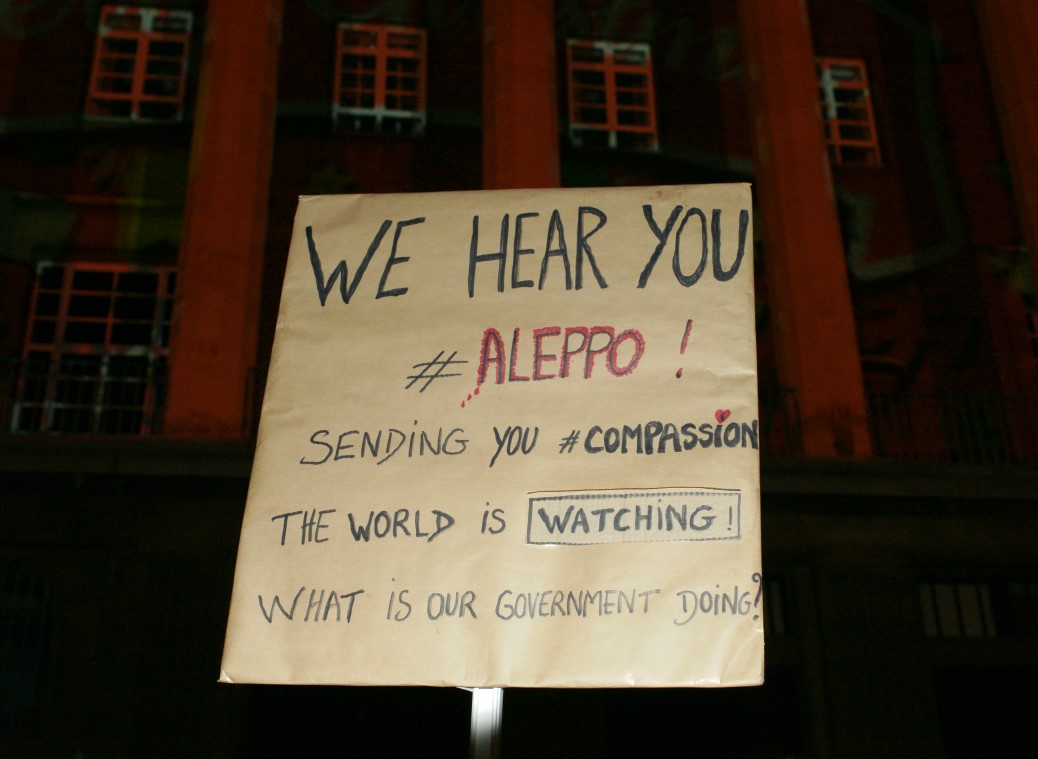 WE HEAR YOU
#ALEPPO !
SENDING YOU #COMPASSION
THE WORLD IS WATCHING!
WHAT IS OUR GOVERNMENT DOING?